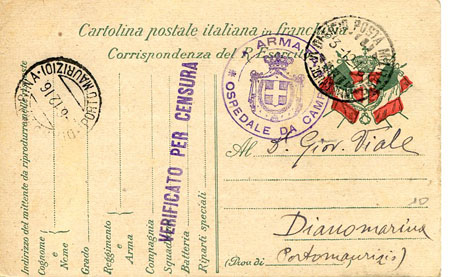 Cartolina postale italiana in franchigia
Corrispondenza del R. Esercito
ARMATA
OSPEDALE DA CAMPO
UFFICIO POSTA MILITARE
PORTO MAURIZIO
6.12.16
VERIFICATO PER CENSURA
Indirizzo del mittente da riprodurre nelle risposte
Cognome
e
Nome
Grado
Reggimento
e
Arma
Compagnia
Squadrone
Batteria
Riparti speciali
Al Dr. Giov. Viale
Dianomarina
(Prov. di Portomaurizio)